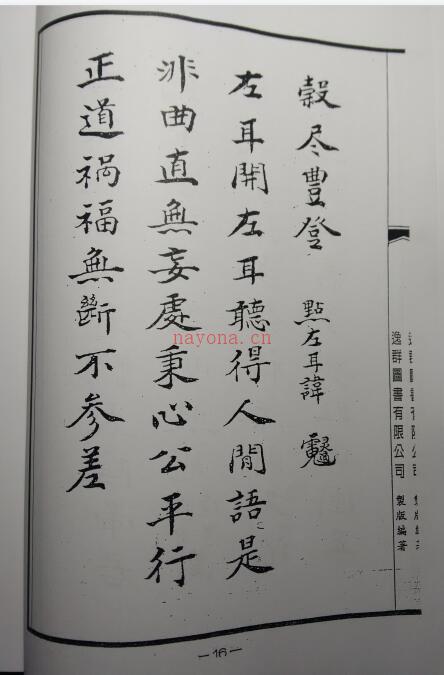 穀尽豐登　點左耳諱
左耳開左耳聽得人間語是
非曲直無妄處秉心公平行
正道禍福無斷不參差
逸群圖書有限公司　製版編著
nayona.cn
—16—